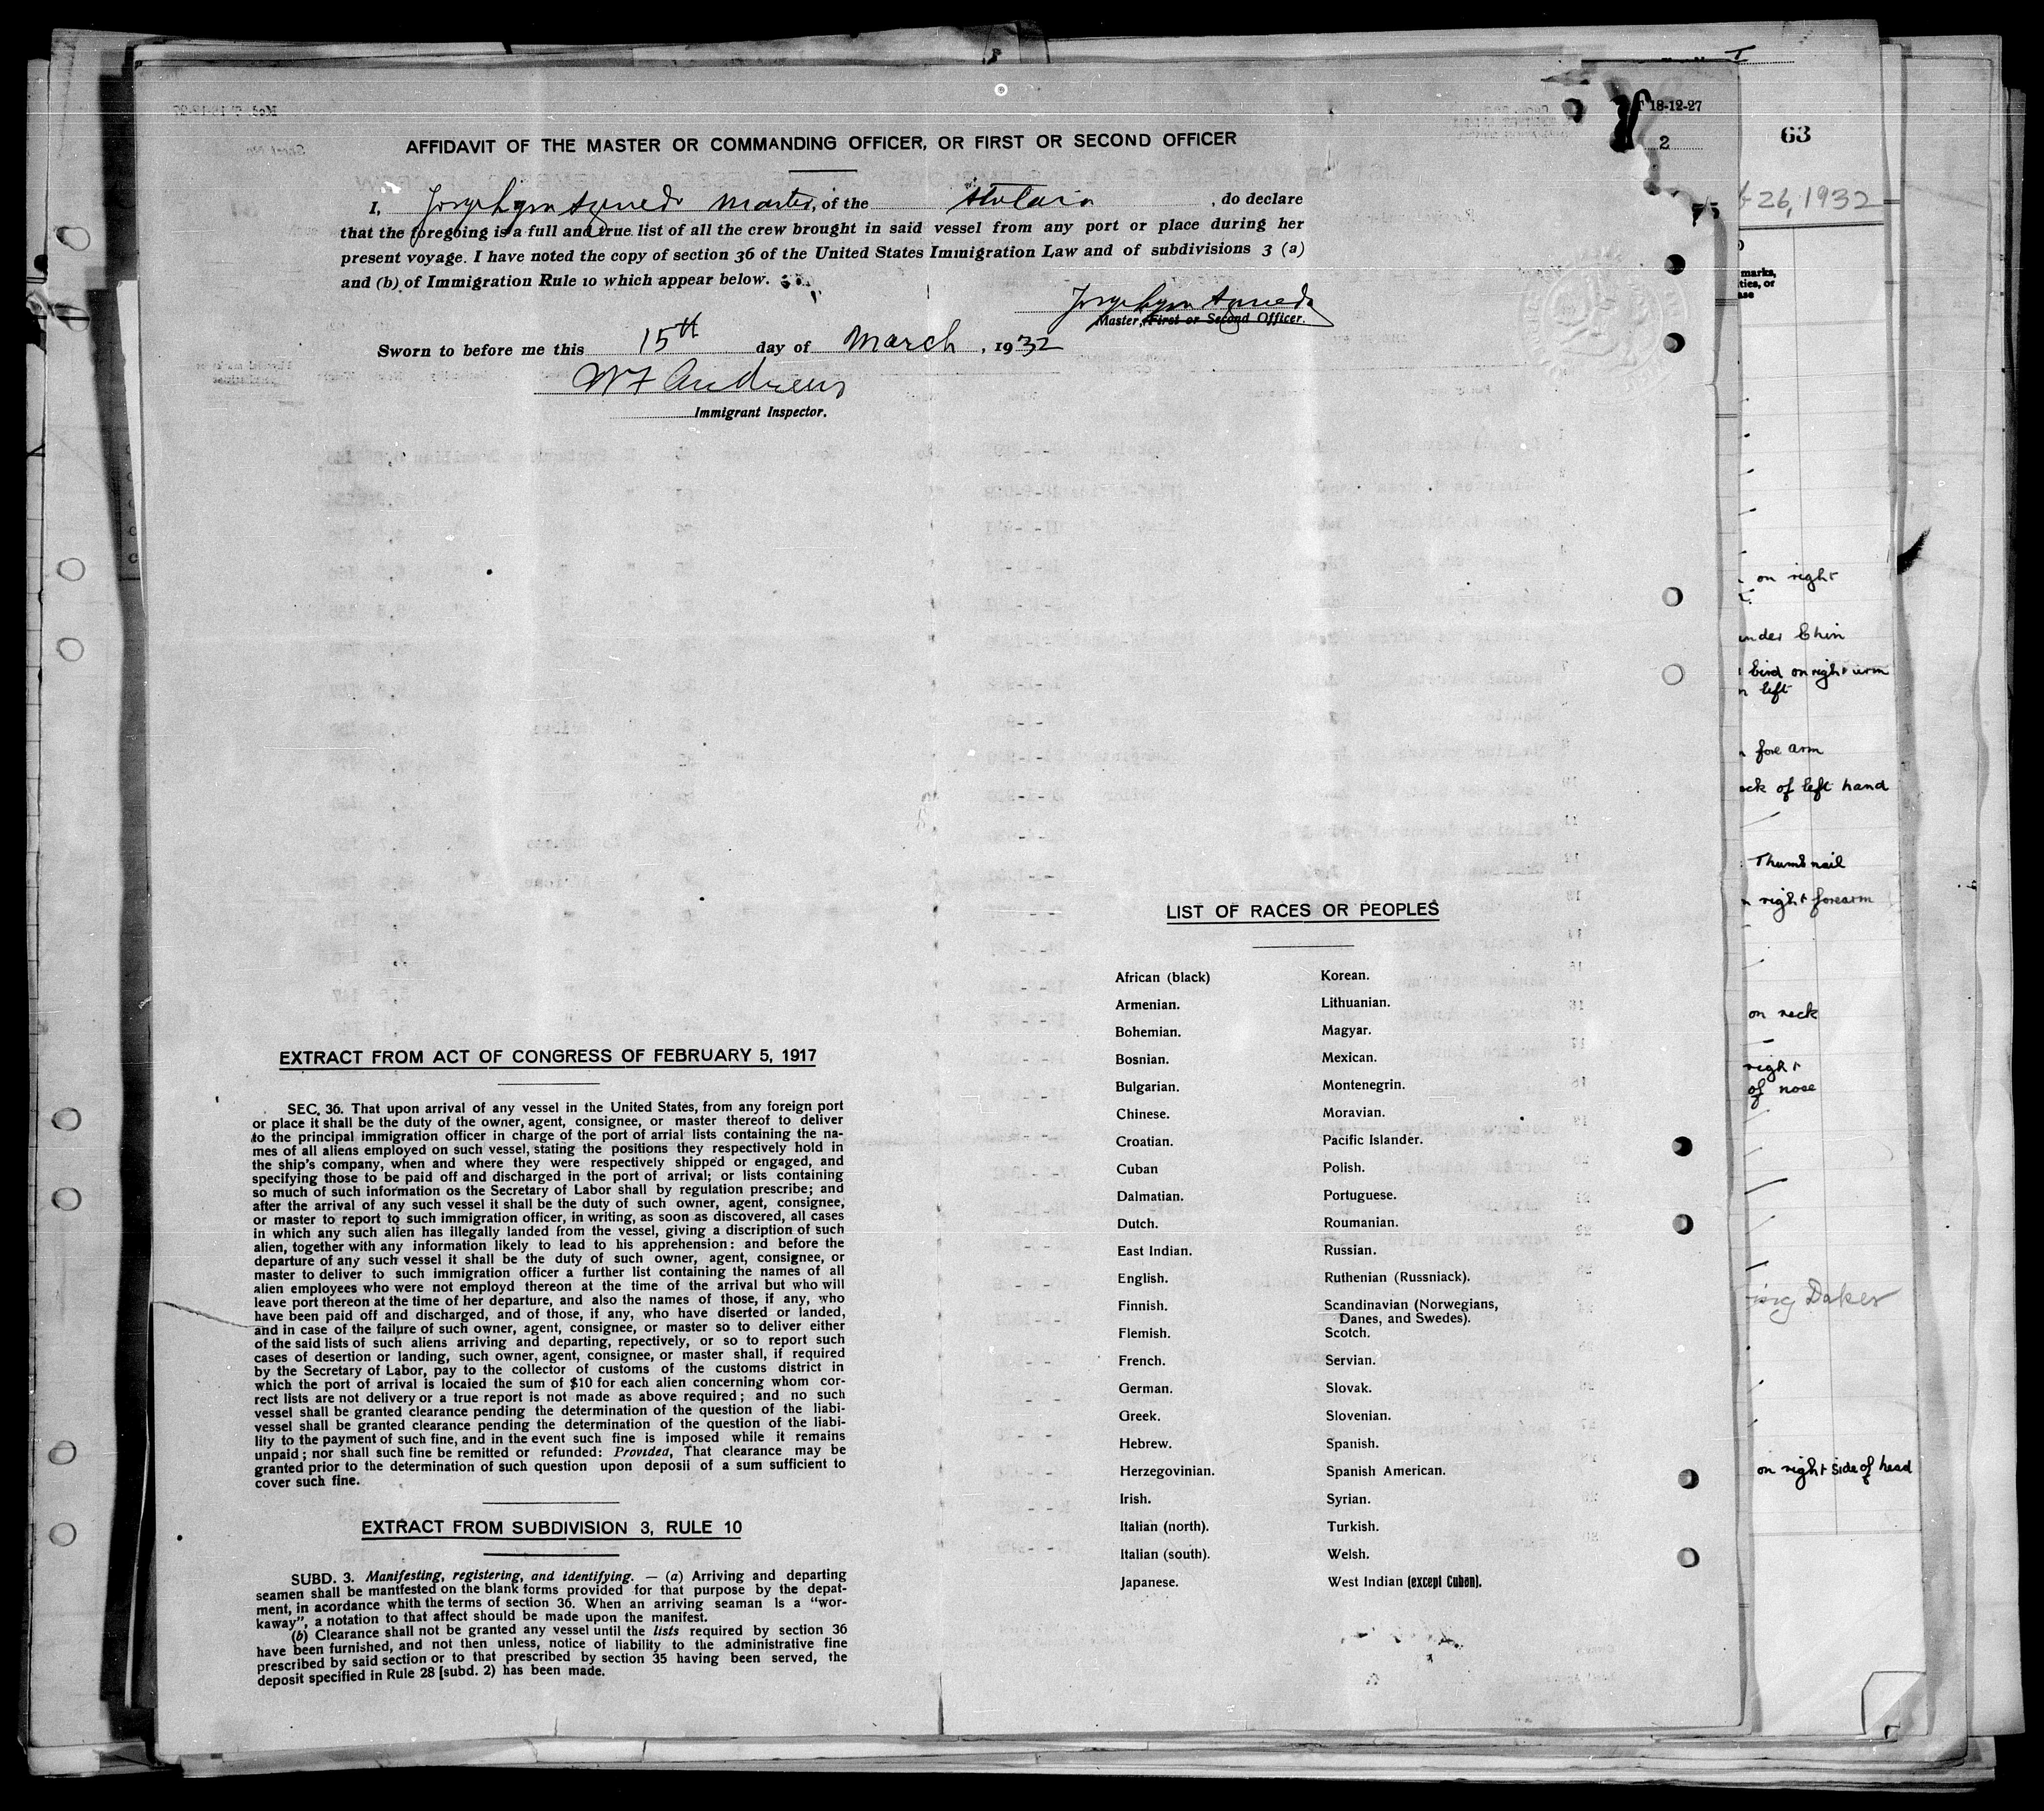 T 18-12-27
2
63
26, 1932
AFFIDAVIT OF THE MASTER OR COMMANDING OFFICER, OR FIRST OR SECOND OFFICER
I, master, of the , do declare
that the foregoing is a full and true list of all the crew brought in said vessel from any port or place during her
present voyage. I have noted the copy of section 36 of the United States Immigration Law and of subdivisions 3 (a)
and (b) of Immigration Rule 10 which appear below.
Master, First or Second Officer.
Sworn to before me this 15th day of March, 1932
W F Andrews
Immigrant Inspector.
EXTRACT FROM ACT OF CONGRESS OF FEBRUARY 5, 1917
SEC. 36. That upon arrival of any vessel in the United States, from any foreign port
or place it shall be the duty of the owner, agent, consignee, or master thereof to deliver
to the principal immigration officer in charge of the port of arrial lists containing the na-
mes of all aliens employed on such vessel, stating the positions they respectively hold in
the ship's company, when and where they were respectively shipped or engaged, and
specifying those to be paid off and discharged in the port of arrival; or lists containing
so much of such information os the Secretary of Labor shall by regulation prescribe; and
after the arrival of any such vessel it shall be the duty of such owner, agent, consignee,
or master to report to such immigration officer, in writing, as soon as discovered, all cases
in which any such alien has illegally landed from the vessel, giving a discription of such
alien, together with any information likely to lead to his apprehension: and before the
departure of any such vessel it shall be the duty of such owner, agent, consignee, or
master to deliver to such immigration officer a further list containing the names of all
alien employees who were not employd thereon at the time of the arrival but who will
leave port thereon at the time of her departure, and also the names of those, if any, who
have been paid off and discharged, and of those, if any, who have diserted or landed,
and in case of the failure of such owner, agent, consignee, or master so to deliver either
of the said lists of such aliens arriving and departing, repectively, or so to report such
cases of desertion or landing, such owner, agent, consignee, or master shall, if required
by the Secretary of Labor, pay to the collector of customs of the customs district in
which the port of arrival is locaied the sum of $10 for each alien concerning whom cor-
rect lists are not delivery or a true report is not made as above required; and no such
vessel shall be granted clearance pending the determination of the question of the liabi-
vessel shall be granted clearance pending the determination of the question of the liabi-
lity to the payment of such fine, and in the event such fine is imposed while it remains
unpaid; nor shall such fine be remitted or refunded: Provided, That clearance may be
granted prior to the determination of such question upon deposii of a sum sufficient to
cover such fine.
EXTRACT FROM SUBDIVISION 3, RULE 10
SUBD. 3. Manifesting, registering, and identifying. — (a) Arriving and departing
seamen shall be mantfested on the blank forms provided for that purpose by the depat-
ment, in acordance whith the terms of section 36. When an arriving seaman is a “wor-
kaway”, a notation to that affect should be made upon the manifest.
(b) Clearance shall not be granted any vessel until the lists required by section 36
have been furnished, and not then unless, notice of liability to the administrative fine
prescribed by said section or to that prescribed by section 35 having been served, the
deposit specified in Rule 28 [subd. 2) has been made.
LIST OF RACES OR PEOPLES
African (black)
Armenian.
Bohemian.
Bosnian.
Bulgarian.
Chinese.
Croatian.
Cuban
Dalmatian.
Dutch.
East Indian.
English.
Finnish.
Flemish.
French.
German.
Greek.
Hebrew.
Herzegovinian.
Irish.
Italian (north).
Italian (south).
Japanese.
Korean.
Lithuanian.
Magyar.
Mexican.
Montenegrin.
Moravian.
Pacific Islander.
Polish.
Portuguese.
Roumanian.
Russian.
Ruthenian (Russniack).
Scandinavian (Norwegians,
Danes, and Swedes).
Scotch.
Servian.
Slovak.
Slovenian.
Spanish.
Spanish American.
Syrian.
Turkish.
Welsh.
West Indian (except Cuban).
marks,
on right
under Chin
bird on right arm
left
fore arm
of left hand
Thumb nail
right forearm
on neck
right
of nose
on right side of head